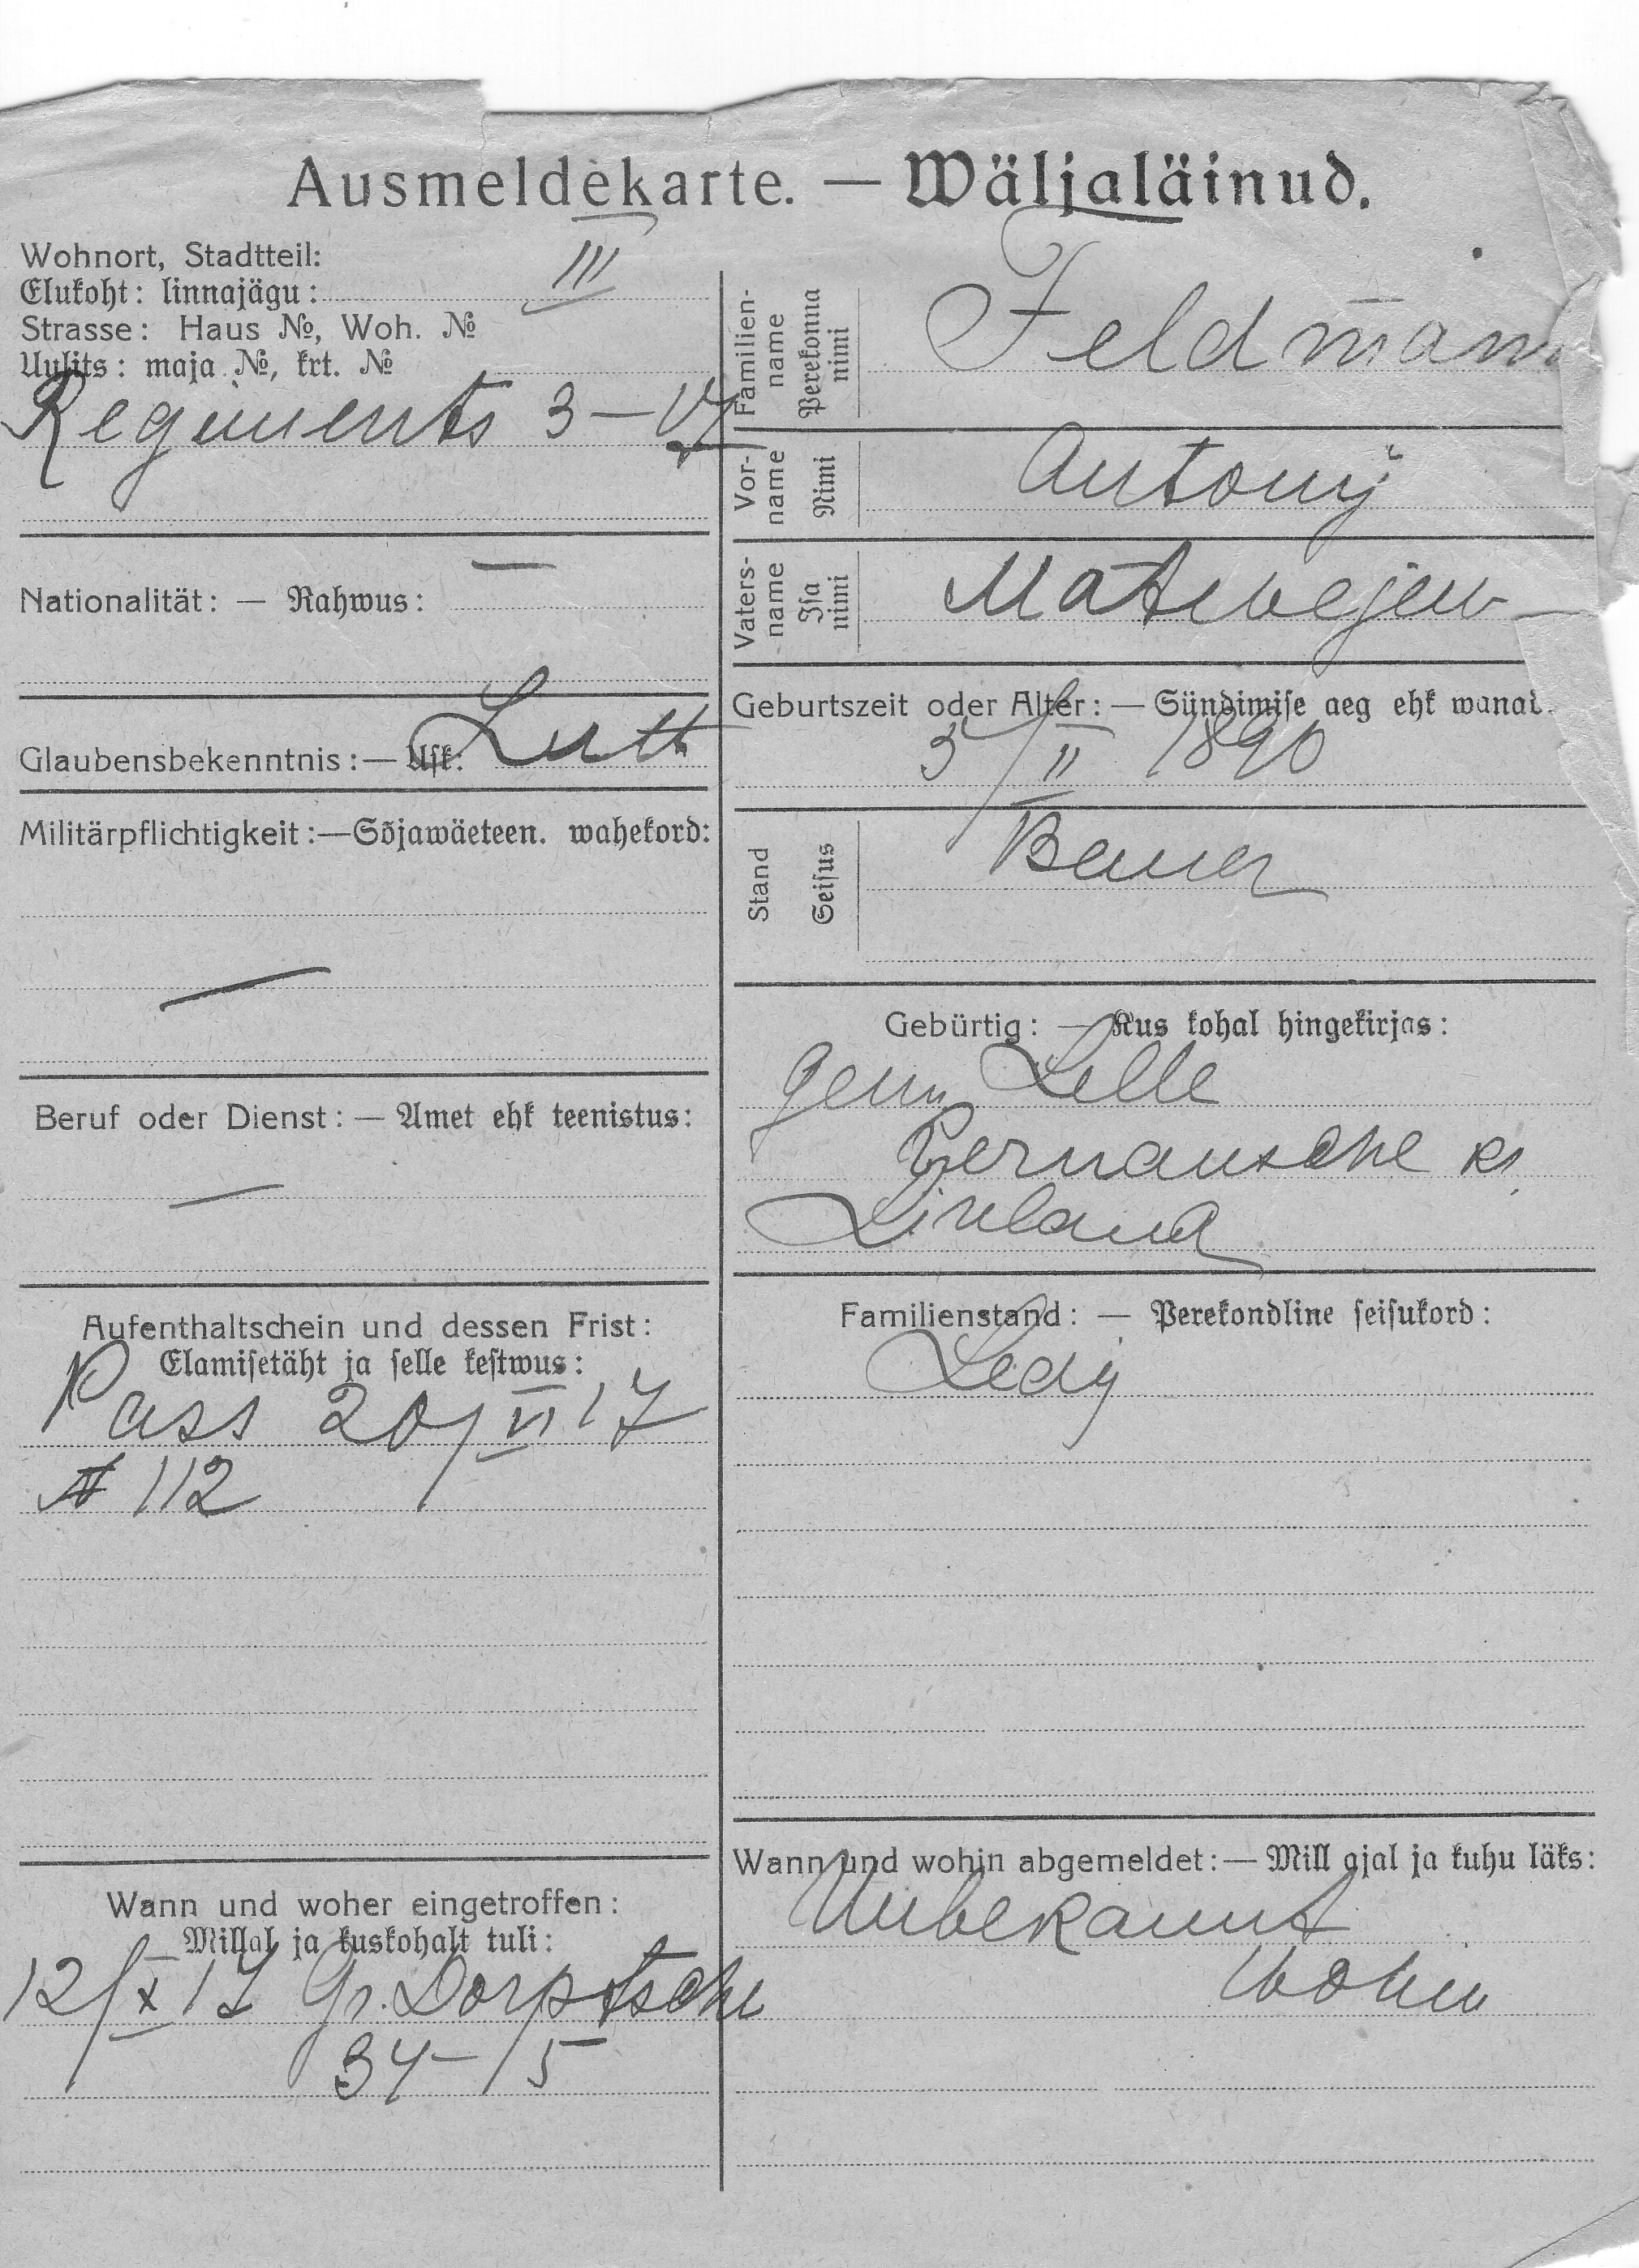 Ausmeldekarte. — Wäljaläinud.
Wohnort, Stadtteil:
Elukoht: linnajägu: III
Strasse: Haus №, Woh. №
Uulits: maja №, krt. №
Regiments 3 — 17
Nationalität: — Rahwus: —
Glaubensbekenntnis: — Usk: Luth
Militärpflichtigkeit: — Sõjawäeteen. wahekord:
—
Beruf oder Dienst: — Amet ehk teenistus:
—
Aufenthaltschein und dessen Frist:
Elamisetäht ja selle kestwus:
Pass 20/VI 17
№ 112
Wann und woher eingetroffen:
Millal ja kuskohalt tuli:
12/X 17 Gr. Dorptsche
34 — 15
Familien-
name
Perekonna
nimi
Feldmann
Vor-
name
Nimi
Antony
Vaters-
name
Isa
nimi
Matwejew
Geburtszeit oder Alter: — Sündimise aeg ehk wanad.
5/II 1890
Stand
Seisus
Bauer
Gebürtig: — Kus kohal hingekirjas:
Gem Lelle
Pernausche Kr
Livland
Familienstand: — Perekondline seisukord:
Ledig
Wann und wohin abgemeldet: — Mill ajal ja kuhu läks:
Unbekannt
wohin